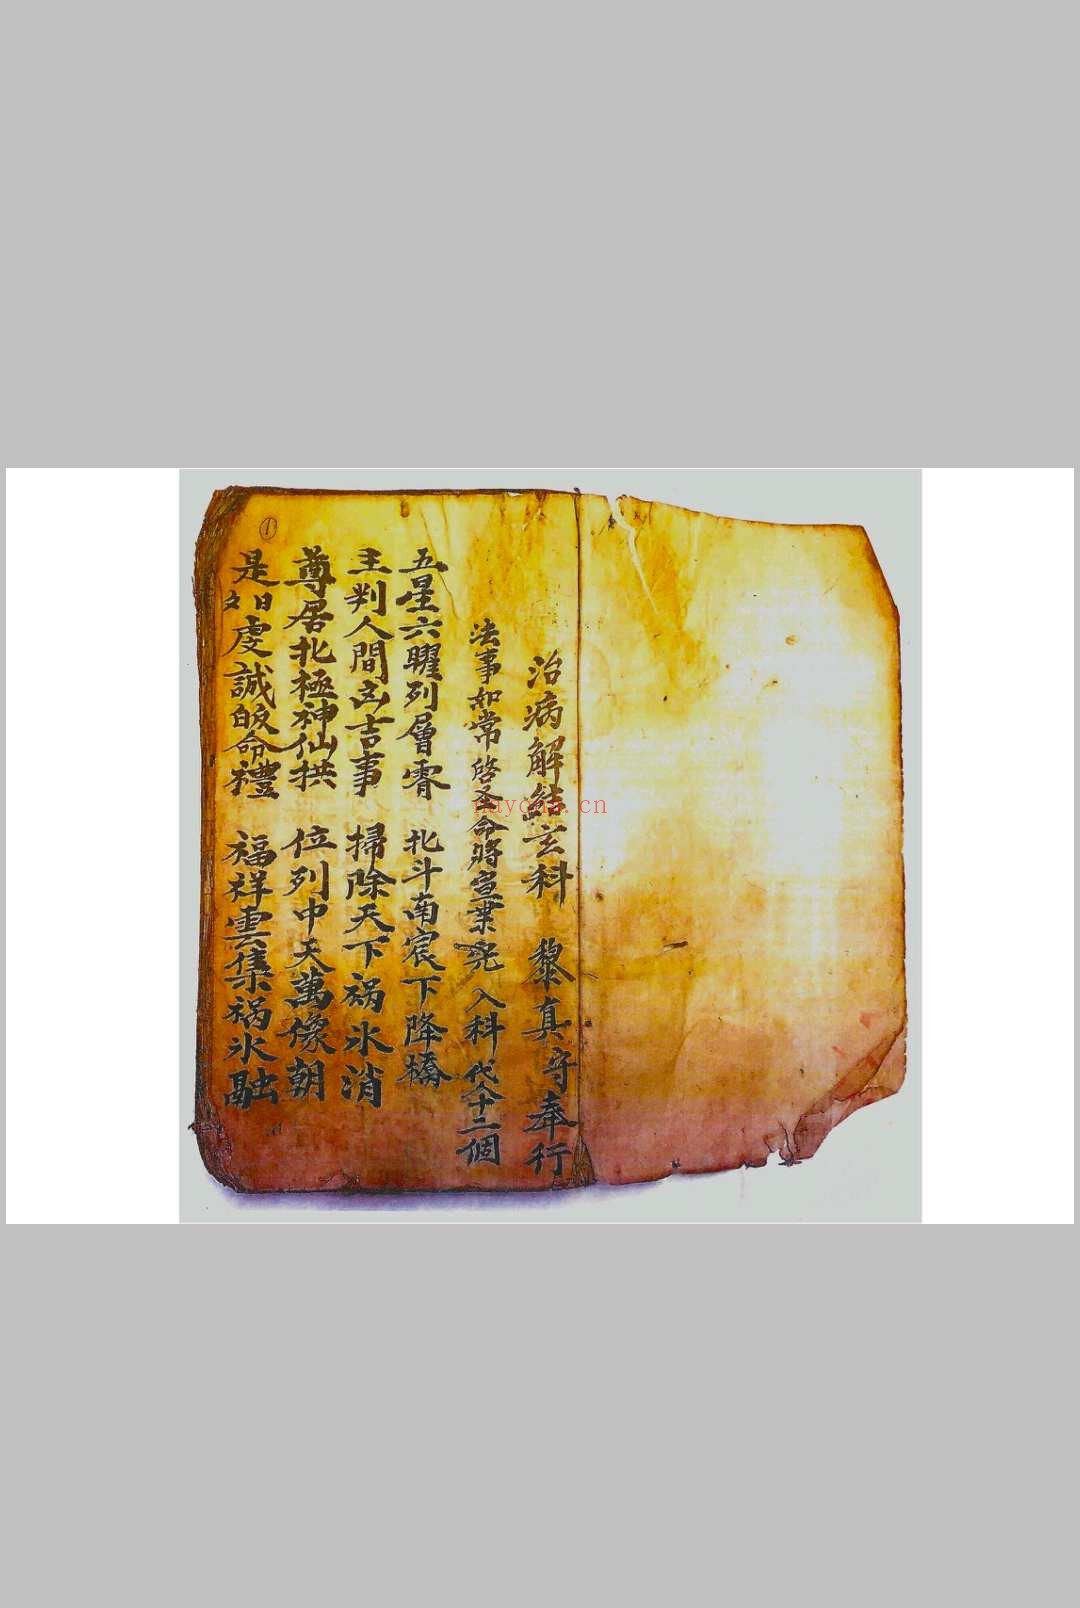 治病解結玄科 黎真守奉行
法事如常啓文命將宣業完 入科代人十二個
五星六曜列層霄 北斗南宸下降橋
主判人間凶吉事 掃除天下禍氷消
尊居北極神仙拱 位列中天萬像朝
是日虔誠皈命禮 福祥雲集禍氷融
①